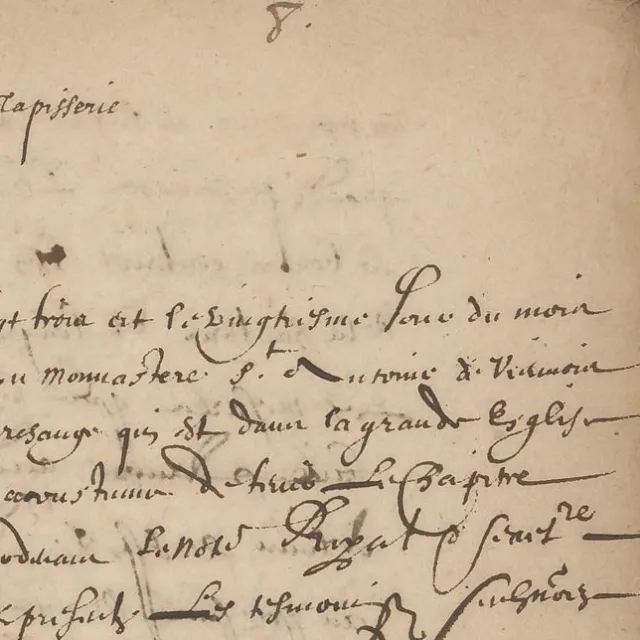 8.
Tapisserie
gt trois et le vingtiesme Jour du mois
ou Monnastere St Antoine de Viennois
archange qui est dans la grande Esglise
acoustume de tenir Le Chapitre
Le Not^e Royal & Secret^re
presentz Les tesmoins